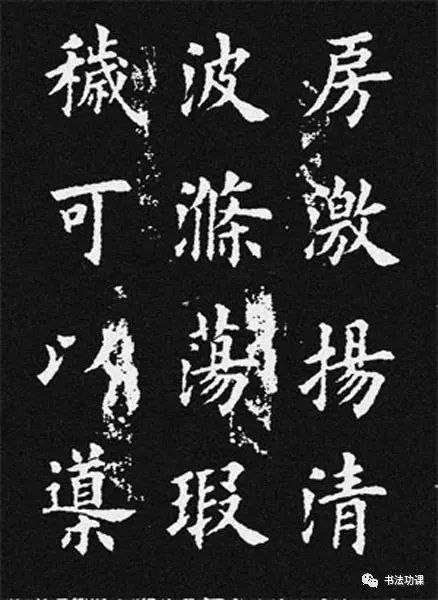 房激揚清
波滌蕩瑕
穢可以導
书法功课